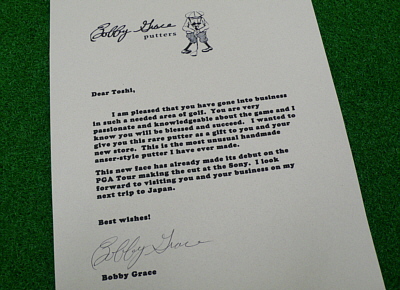 Bobby Grace
putters
Dear Toshi,
I am pleased that you have gone into business
in such a needed area of golf. You are very
passionate and knowledgeable about the game and I
know you will be blessed and succeed. I wanted to
give you this rare putter as a gift to you and your
new store. This is the most unusual handmade
anser-style putter I have ever made.
This new face has already made its debut on the
PGA Tour making the cut at the Sony. I look
forward to visiting you and your business on my
next trip to Japan.
Best wishes!
Bobby Grace
Bobby Grace